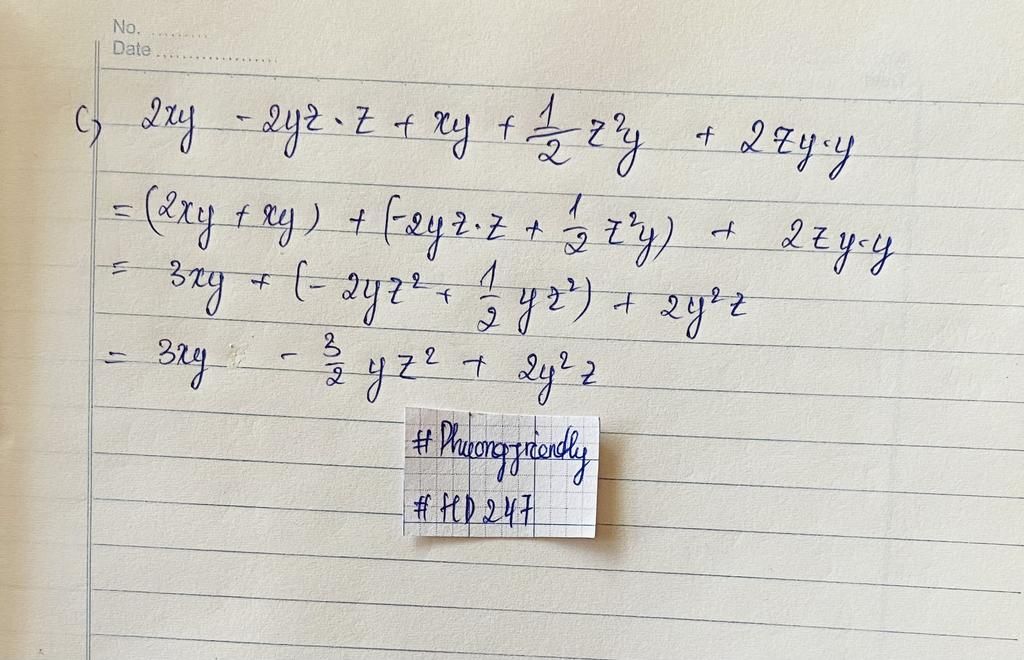 No. .........
Date ...................
c) 2xy - 2yz . z + xy + 1/2 z²y + 2zy.y
= (2xy + xy) + (-2yz.z + 1/2 z²y) + 2zy.y
= 3xy + (- 2yz² + 1/2 yz²) + 2y²z
= 3xy - 3/2 yz² + 2y²z
# Phuongfriendly
# HD 247